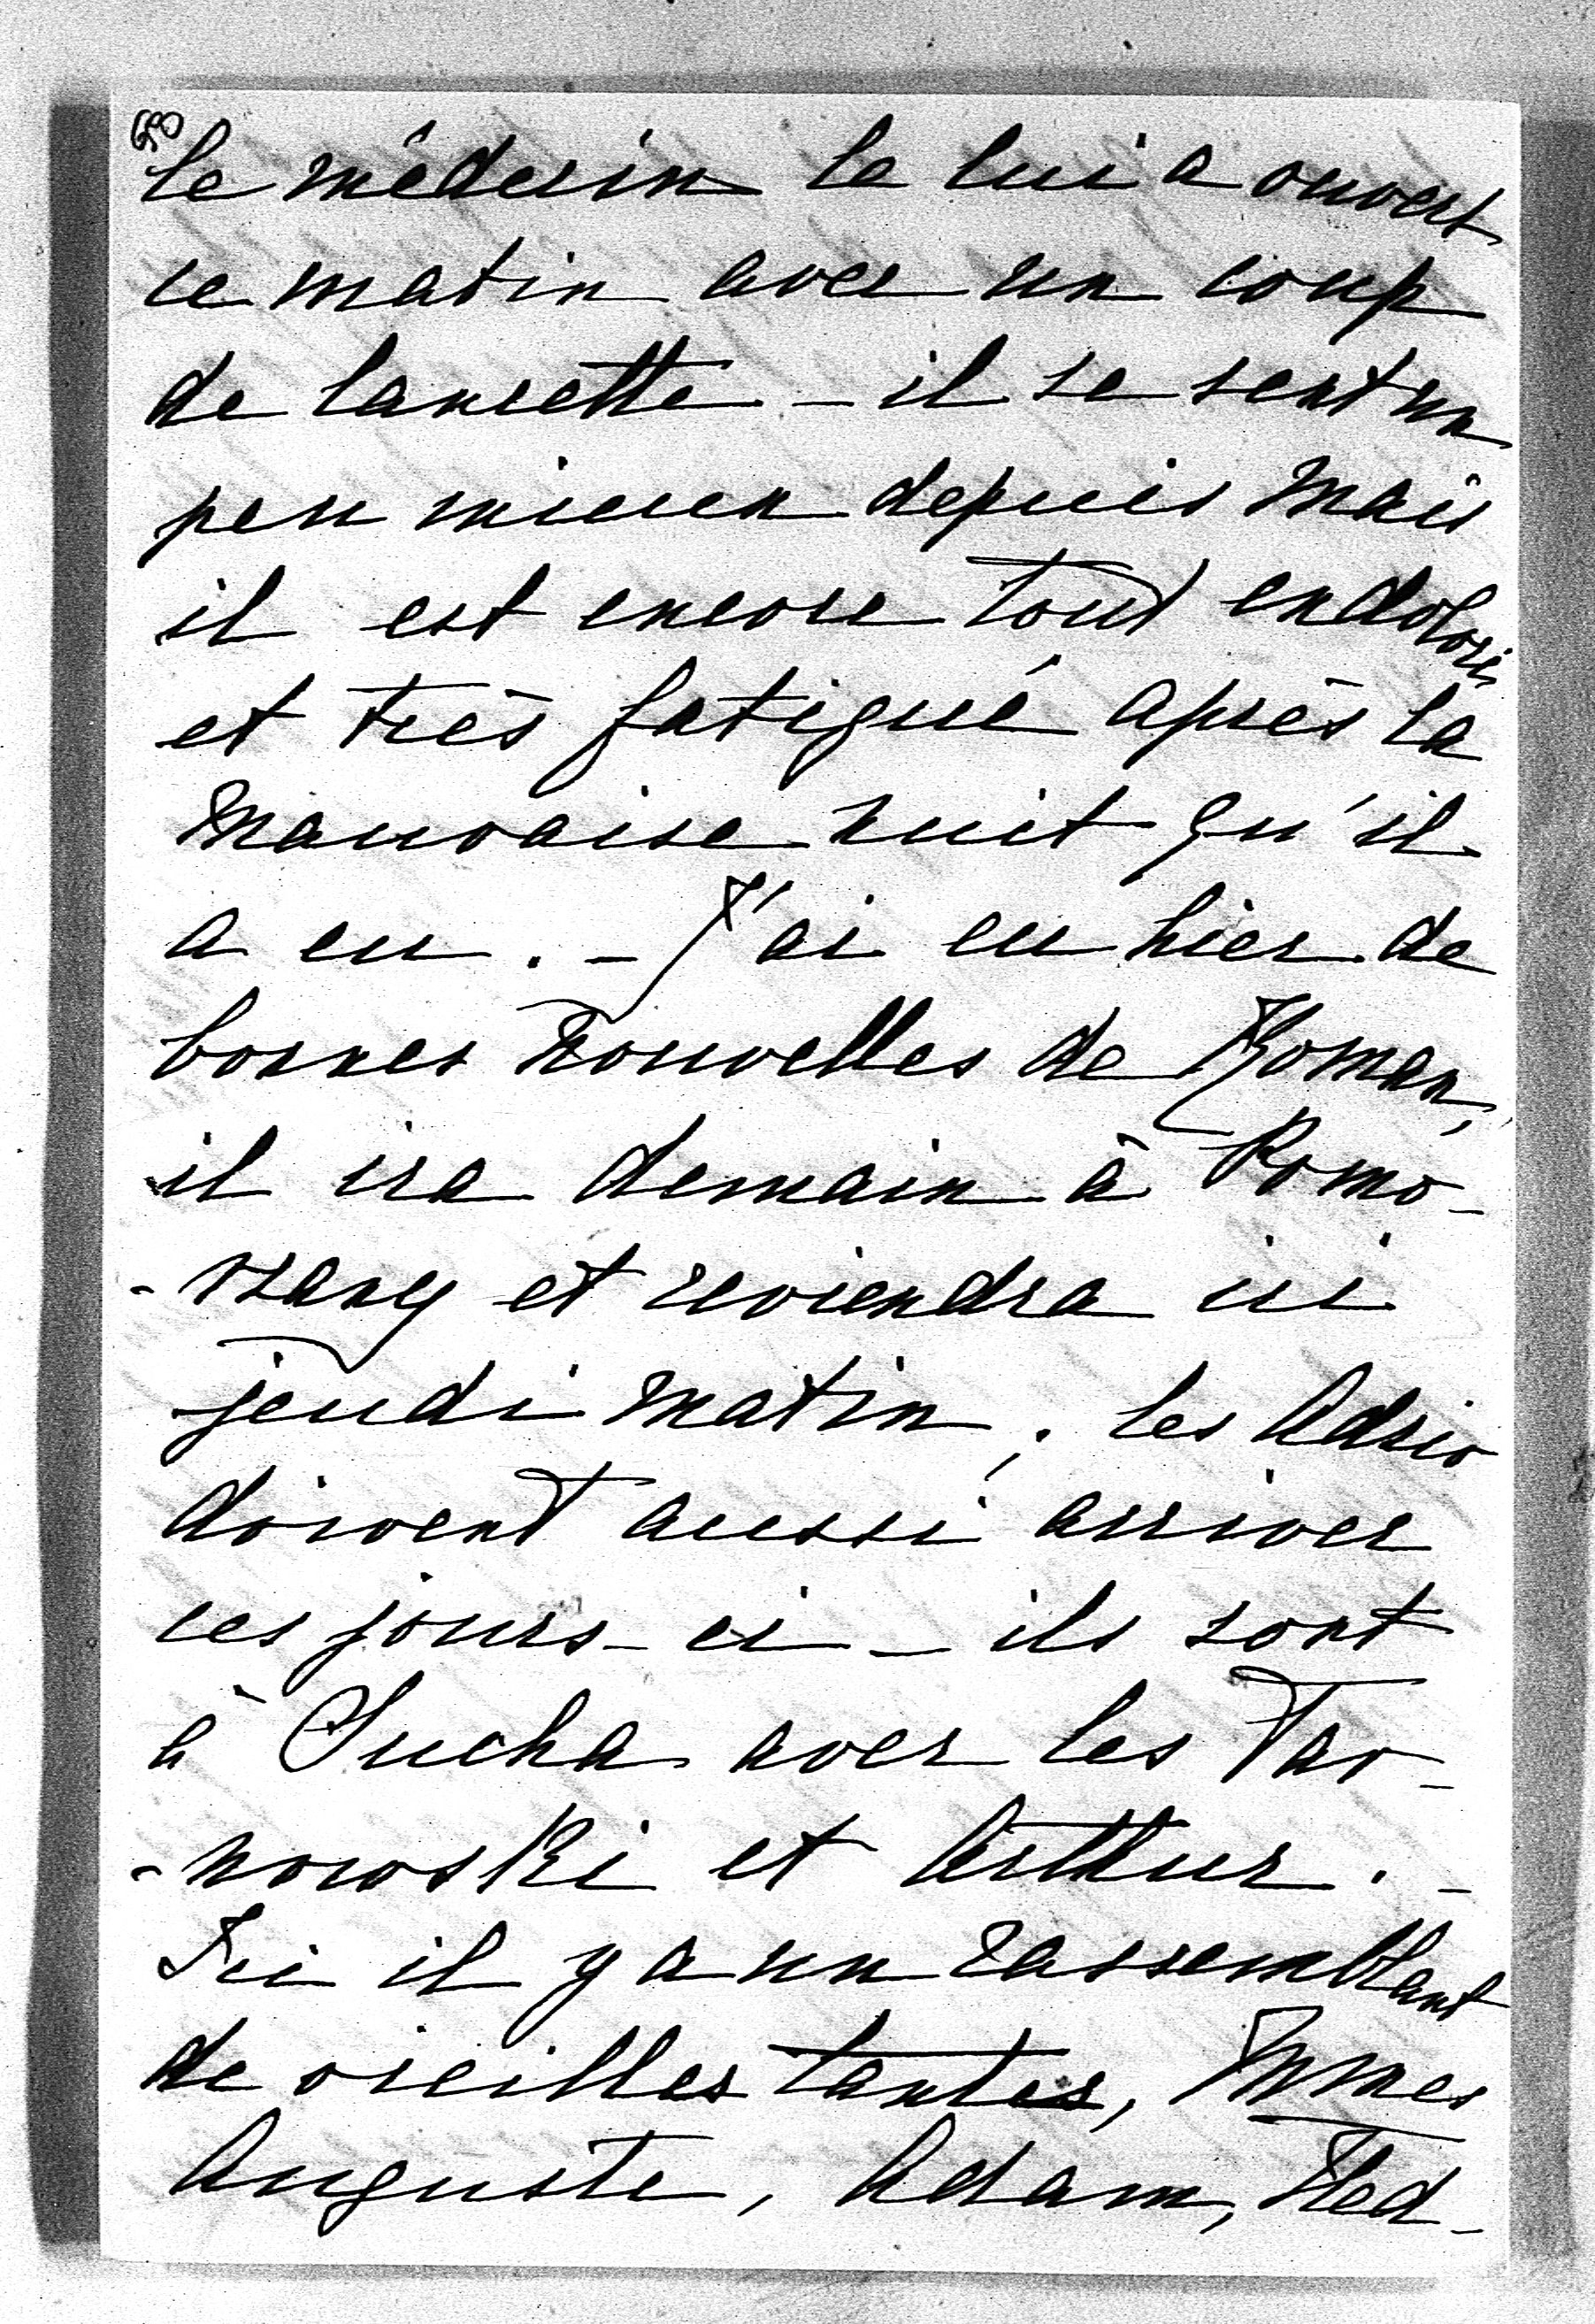 le médecin le lui a ouvert
ce matin avec un coup
de lancette – il se sent un
peu mieux depuis mais
il est encore tout endolori
et très fatigué après la
mauvaise nuit qu'il
a eu. – J'ai eu hier de
bonnes nouvelles de Roman,
il ira demain à Pomo-
-rzany et reviendra ici
jeudi matin; les Adzio
doivent aussi arriver
ces jours-ci – ils sont
à Sucha avec les Tar-
-nowski et Arthur. –
Ici il y a un rassemblant
de vieilles tantes, Mmes
Auguste, Adam,